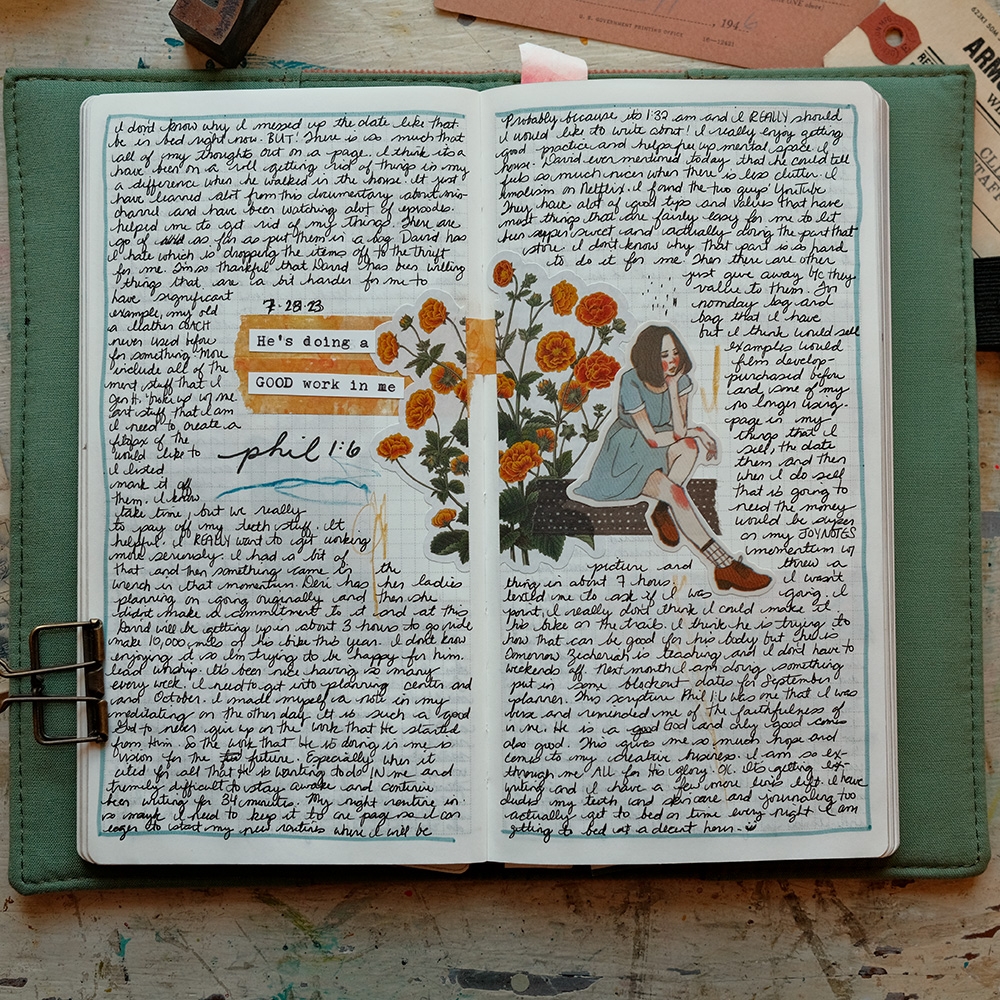 I don't know why I messed up the date like that. Probably because it's 1:32 am and I REALLY should
be in bed right now. BUT! There is so much that I would like to write about! I really enjoy getting
all of my thoughts out on a page. I think it's a good practice and helps free up mental space. I
have been on a roll getting rid of things in my house. David even mentioned today that he could tell
a difference when he walked in the house. It just feels so much nicer when there is less clutter. I
have learned alot from this documentary about minimalism on Netflix. I found the two guys' YouTube
channel and have been watching alot of episodes. They have alot of good tips and values that have
helped me to get rid of my things. There are most things that are fairly easy for me to let
go of as far as put them in a bag. David has been super sweet and actually doing the part that
I hate which is dropping the items off to the thrift store. I don't know why that part is so hard
for me. I'm so thankful that David has been willing to do it for me. Then there are other
things that are a bit harder for me to just give away b/c they
have significant value to them. For
example, my old nomday bag and
a leather COACH bag that I have
never used before but I think would sell
for something. More examples would
include all of the film develop-
ment stuff that I purchased before
and some of my
art stuff that I am no longer using.
I need to create a page in my
filofax of the things that I
would like to sell, the date
I listed them and then
mark it off when I do sell
them. I know that is going to
take time, but we really need the money
to pay off my teeth stuff. It would be super
helpful. I REALLY want to get working on my JOYNOTES
more seriously. I had a bit of momentum w/
that and then something came in the picture and threw a
wrench in that momentum. Deri has her ladies thing in about 7 hours. I wasn't
planning on going originally and then she texted me to ask if I was going. I
didn't make a commitment to it and at this point, I really don't think I could make it.
David will be getting up in about 3 hours to go ride his bike on the trail. I think he is trying to
make 10,000 miles on his bike this year. I don't know how that can be good for his body but he is
enjoying it so I'm trying to be happy for him. Tomorrow Zechariah is teaching and I don't have to
lead worship. It's been nice having so many weekends off. Next month I am doing something
every week. I need to get into planning center and put in some blockout dates for September
and October. I made myself a note in my planner. This scripture Phil 1:6 was one that I was
meditating on the other day. It is such a good verse and reminded me of the faithfulness of
God to never give up on the work that He started in me. He is a good God and only good comes
from Him. So the work that He is doing in me is also good. This gives me so much hope and
vision for the future. Especially when it comes to my creative business. I am so ex-
cited for all that He is wanting to do IN me and through me ALL for His glory. OK. It's getting ex-
tremely difficult to stay awake and continue writing and I have a few more lines left. I have
been writing for 34 minutes. My night routine in-cludes my teeth and skincare and journaling too
so maybe I need to keep it to one page so I can actually get to bed on time every night. I am
eager to start my new routines where I will be getting to bed at a decent hour.
7-28-23
He's doing a
GOOD work in me
phil 1:6
U. S. GOVERNMENT PRINTING OFFICE
, 194